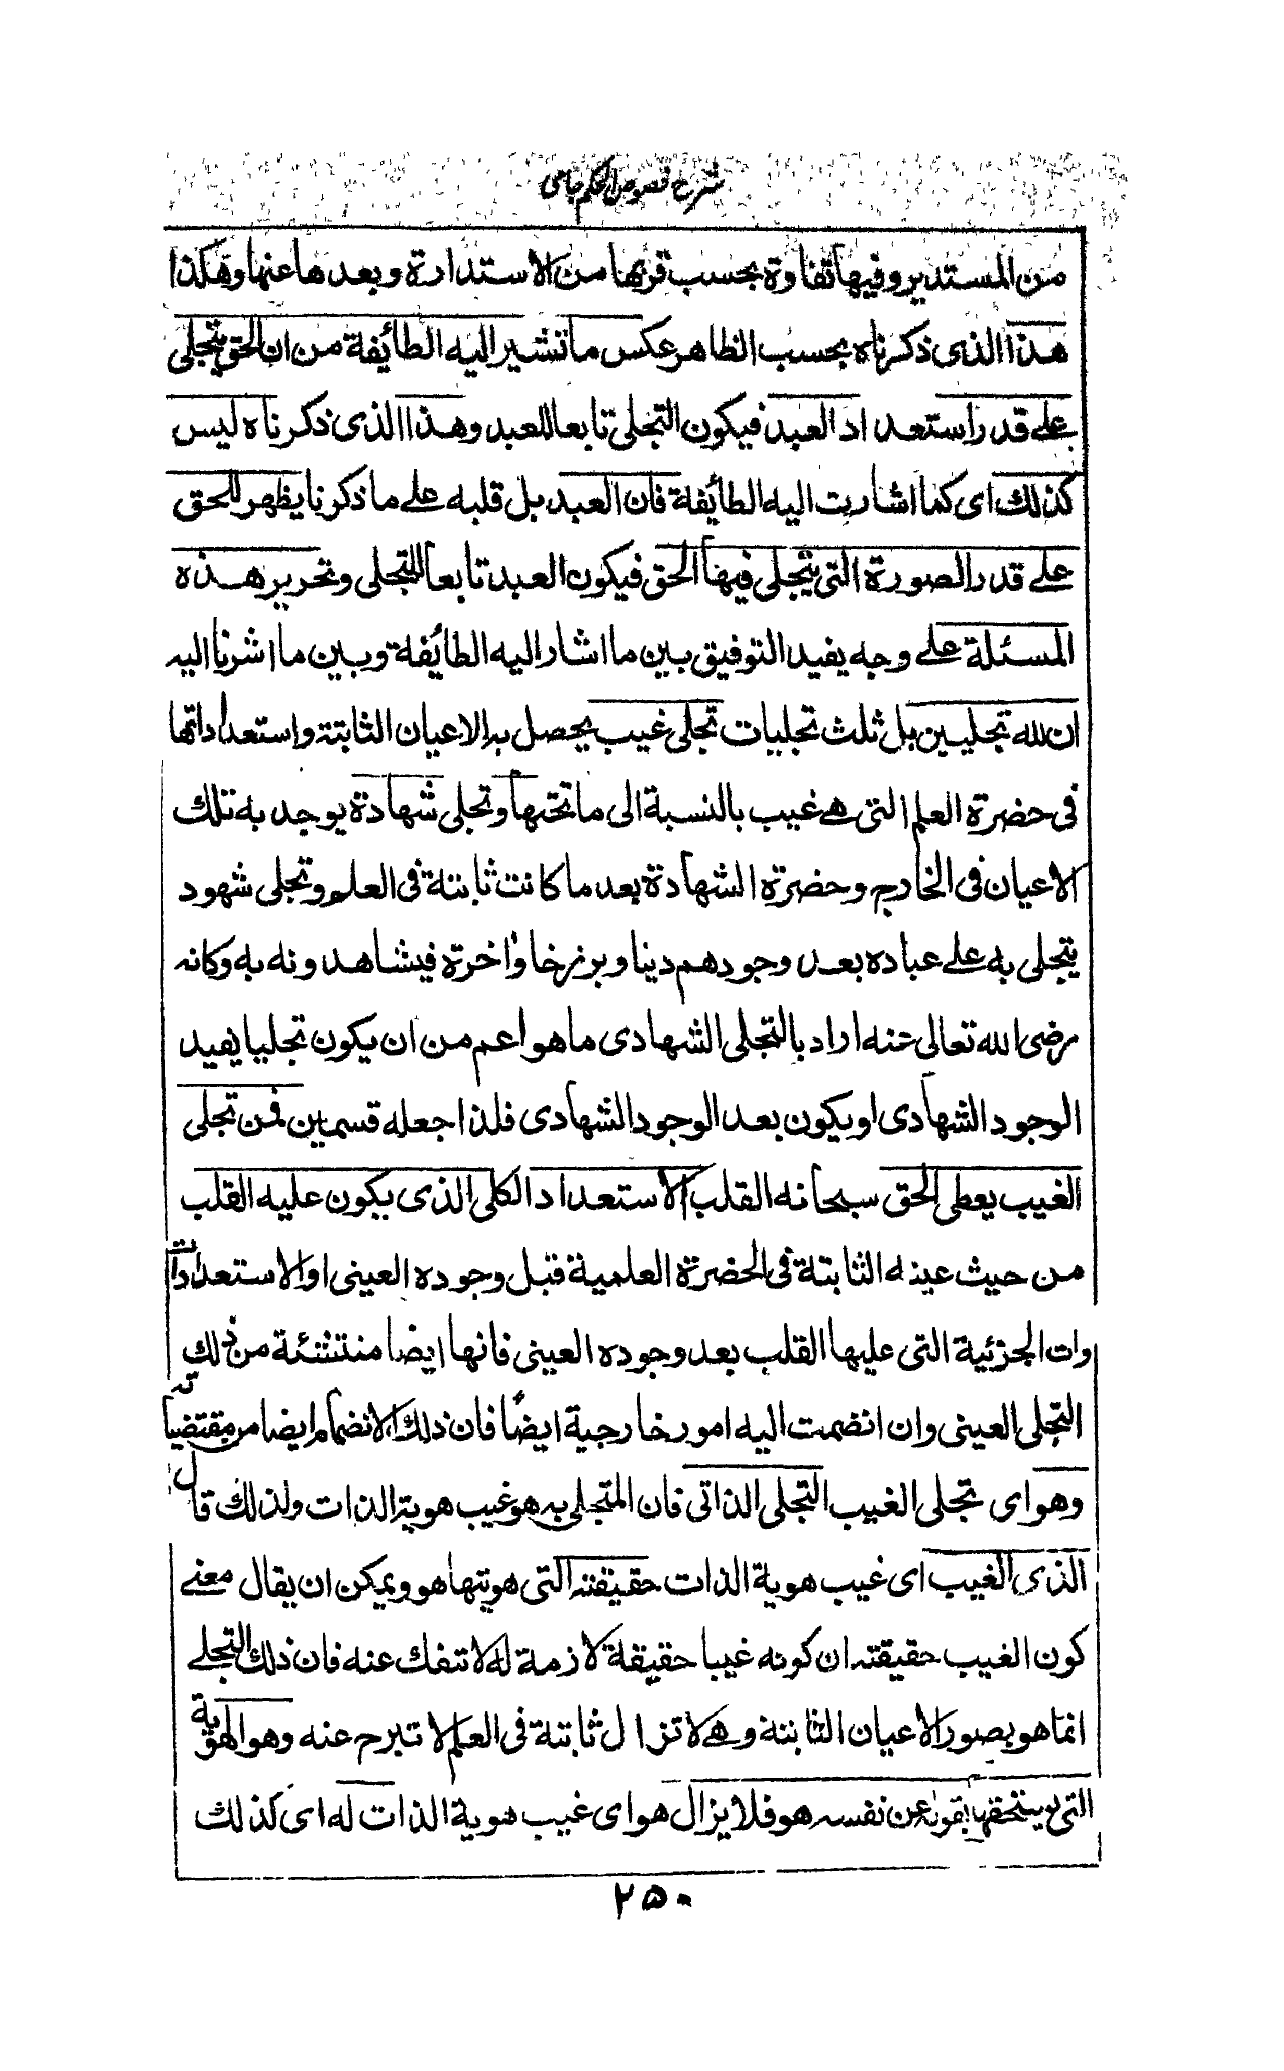 شرح فصوص الحكم جامى
من المستدير وفيها تفاوة بحسب قربها من الاستدارة وبعدها عنها وهكذا
هذا الذى ذكرناه بحسب الظاهر عكس ما تشير اليه الطائفة من ان الحق يتجلى
على قدر استعداد العبد فيكون التجلى تابعا للعبد وهذا الذى ذكرناه ليس
كذلك اى كما اشارت اليه الطائفة فان العبد بل قلبه على ما ذكرنا يظهر للحق
على قدر الصورة التى يتجلى فيها الحق فيكون العبد تابعا للتجلى وتحرير هذه
المسئلة على وجه يفيد التوفيق بين ما اشار اليه الطائفة وبين ما اشرنا اليه
ان لله تجليين بل ثلث تجليات تجلى غيب يحصل به الاعيان الثابتة واستعداداتها
فى حضرة العلم التى هى غيب بالنسبة الى ما تحتها وتجلى شهادة يوجد به تلك
الاعيان فى الخارج وحضرة الشهادة بعد ما كانت ثابتة فى العلم وتجلى شهود
يتجلى به على عباده بعد وجودهم دينا وبرزخا واخرة فيشاهدونه به وكانه
رضى الله تعالى عنه اراد بالتجلى الشهادى ما هو اعم من ان يكون تجليا يفيد
الوجود الشهادى او يكون بعد الوجود الشهادى فلذا جعله قسمين فمن تجلى
الغيب يعطى الحق سبحانه القلب الاستعداد الكلى الذى يكون عليه القلب
من حيث عينه الثابتة فى الحضرة العلمية قبل وجوده العينى او الاستعدادات
وات الجزئية التى عليها القلب بعد وجوده العينى فانها ايضا منتشئة من ذلك
التجلى العينى وان انضمت اليه امور خارجية ايضًا فان ذلك الانضمام ايضا من مقتضياته
وهو اى تجلى الغيب التجلى الذاتى فان المتجلى به هو غيب هوية الذات ولذلك قال
الذى الغيب اى غيب هوية الذات حقيقته التى هويتها هو ويمكن ان يقال معنى
كون الغيب حقيقته ان كونه غيبا حقيقة لازمة له لا تنفك عنه فان ذلك التجلى
انما هو بصور الاعيان الثابتة وهى لا تزال ثابتة فى العلم لا تبرح عنه وهو الهوية
التى يستحقها بقوله عن نفسه هو فلا يزال هو اى غيب هوية الذات له اى كذلك
٢٥٠